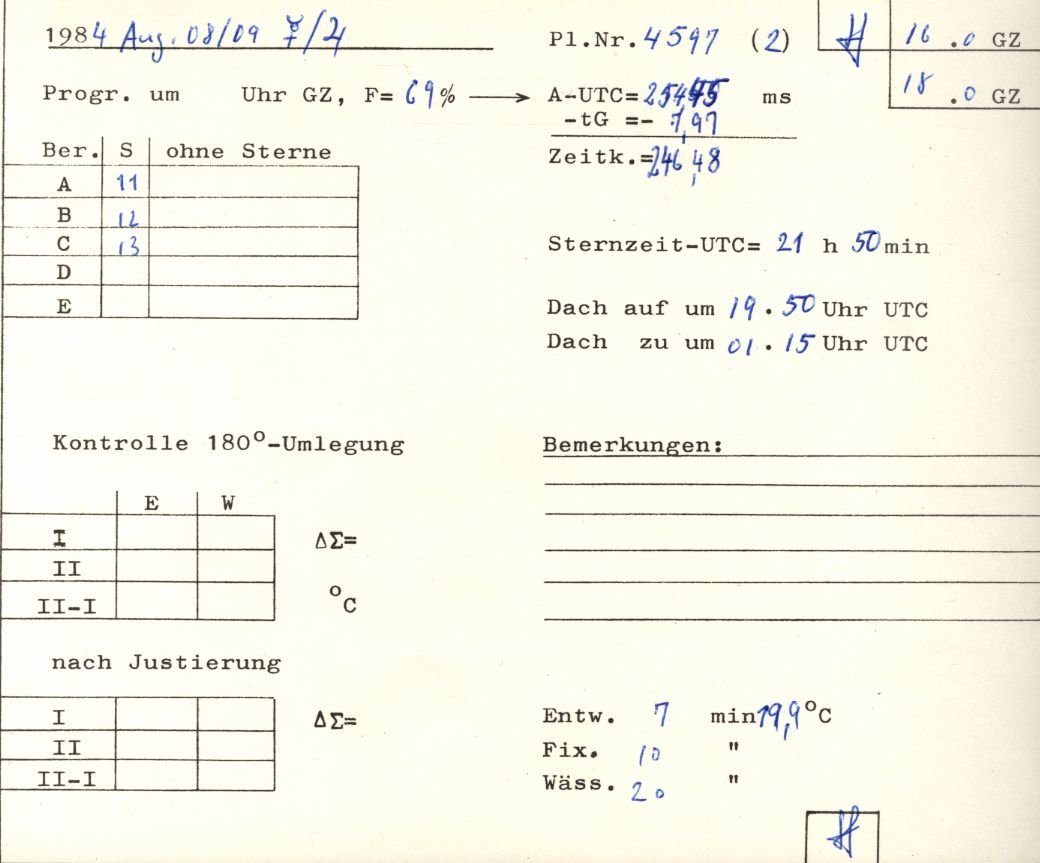 1984 Aug. 08/09 ☿/♃
Pl.Nr. 4597 (2)
16.0 GZ
18.0 GZ
Progr. um Uhr GZ, F= 69% ⟶ A-UTC= 254,45 ms
-tG =- 7,97
Zeitk.= 246,48
Ber. S ohne Sterne
A 11
B 12
C 13
D
E
Sternzeit-UTC= 21 h 50 min
Dach auf um 19.50 Uhr UTC
Dach zu um 01.15 Uhr UTC
Kontrolle 180°-Umlegung
E W
I
II
II-I
ΔΣ=
°C
Bemerkungen:
nach Justierung
I
II
II-I
ΔΣ=
Entw. 7 min 19,9°C
Fix. 10 "
Wäss. 20 "